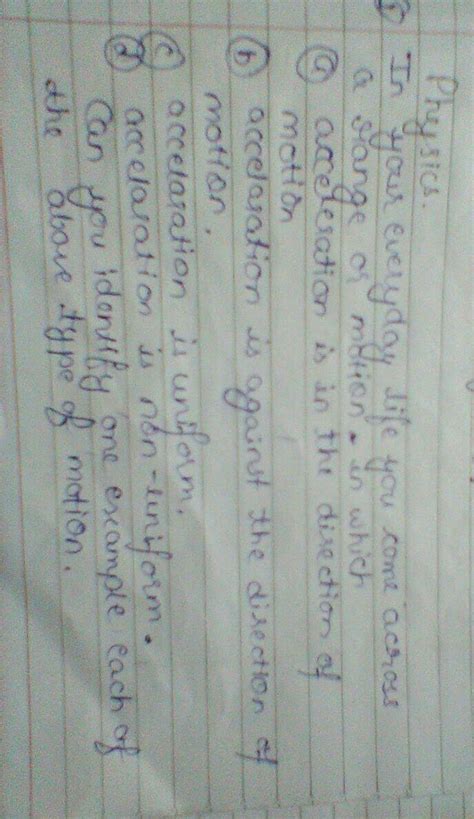 Physics.
In your everyday life you come across
a range of motion. in which
(a) acceleration is in the direction of
motion
(b) accelaration is against the direction of
motion.
(c) accelaration is uniform.
(d) accelaration is non-uniform.
Can you identify one example each of
the above type of motion.